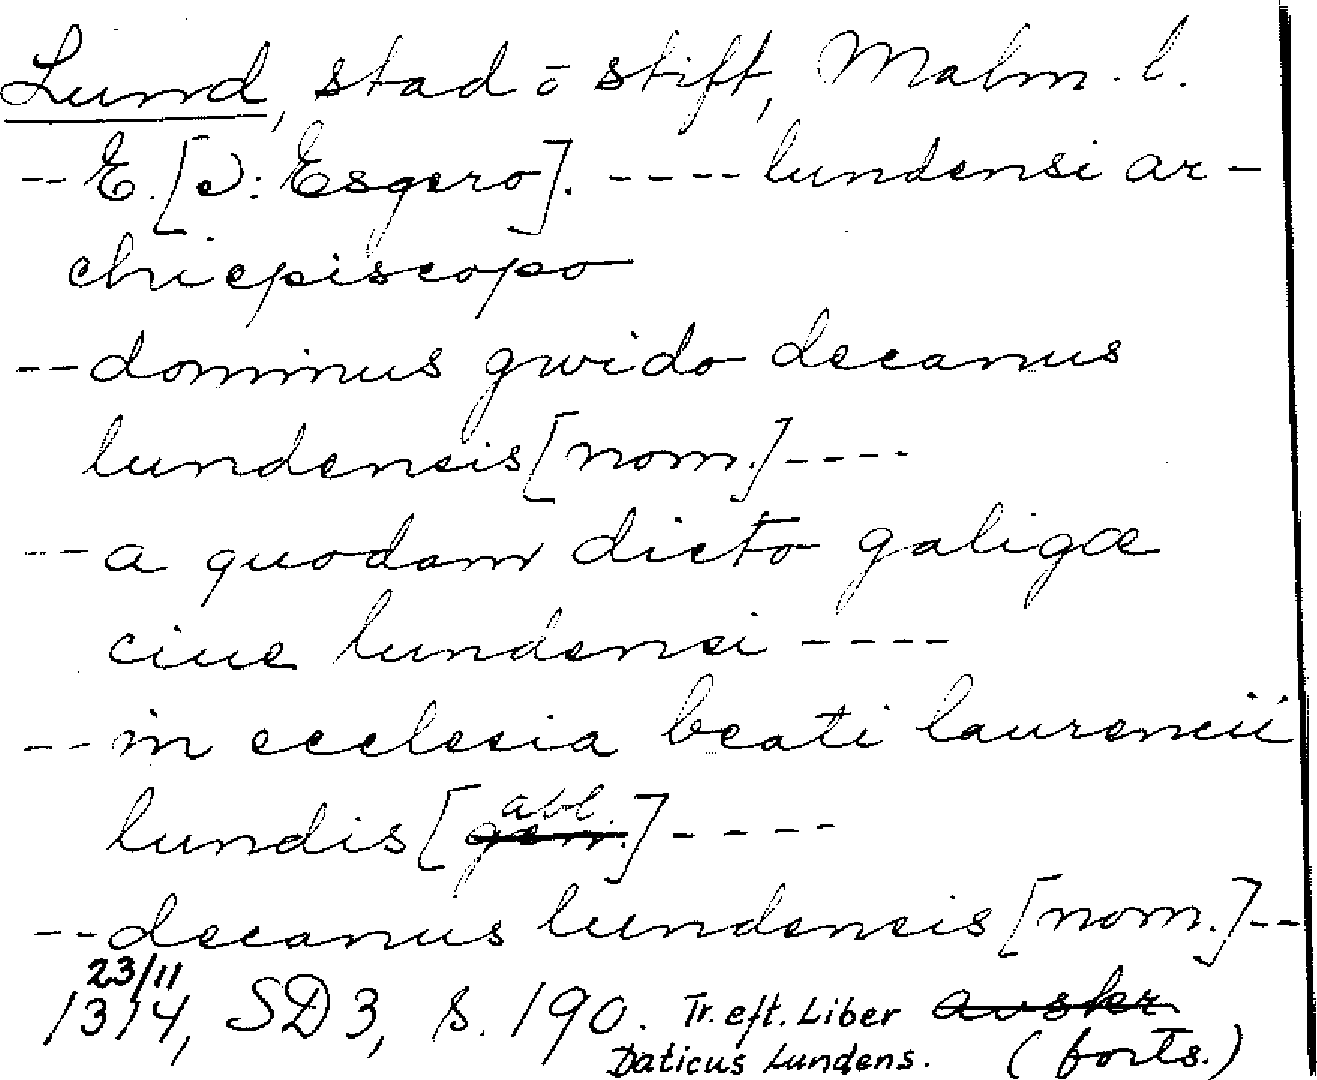 Lund, stad o stift, Malm. l.
-- E. [ɔ: Esgero]. ---- lundensi ar-
chiepiscopo
-- dominus gwido decanus
lundensis [nom.] ----
-- a quodam dicto galigæ
ciue lundensi ----
-- in ecclesia beati laurencii
lundis [gen. abl.] ----
-- decanus lundensis [nom.] --
23/11
1314, SD 3, s. 190. Tr. eft. Liber avskr
Daticus Lundens. (forts.)